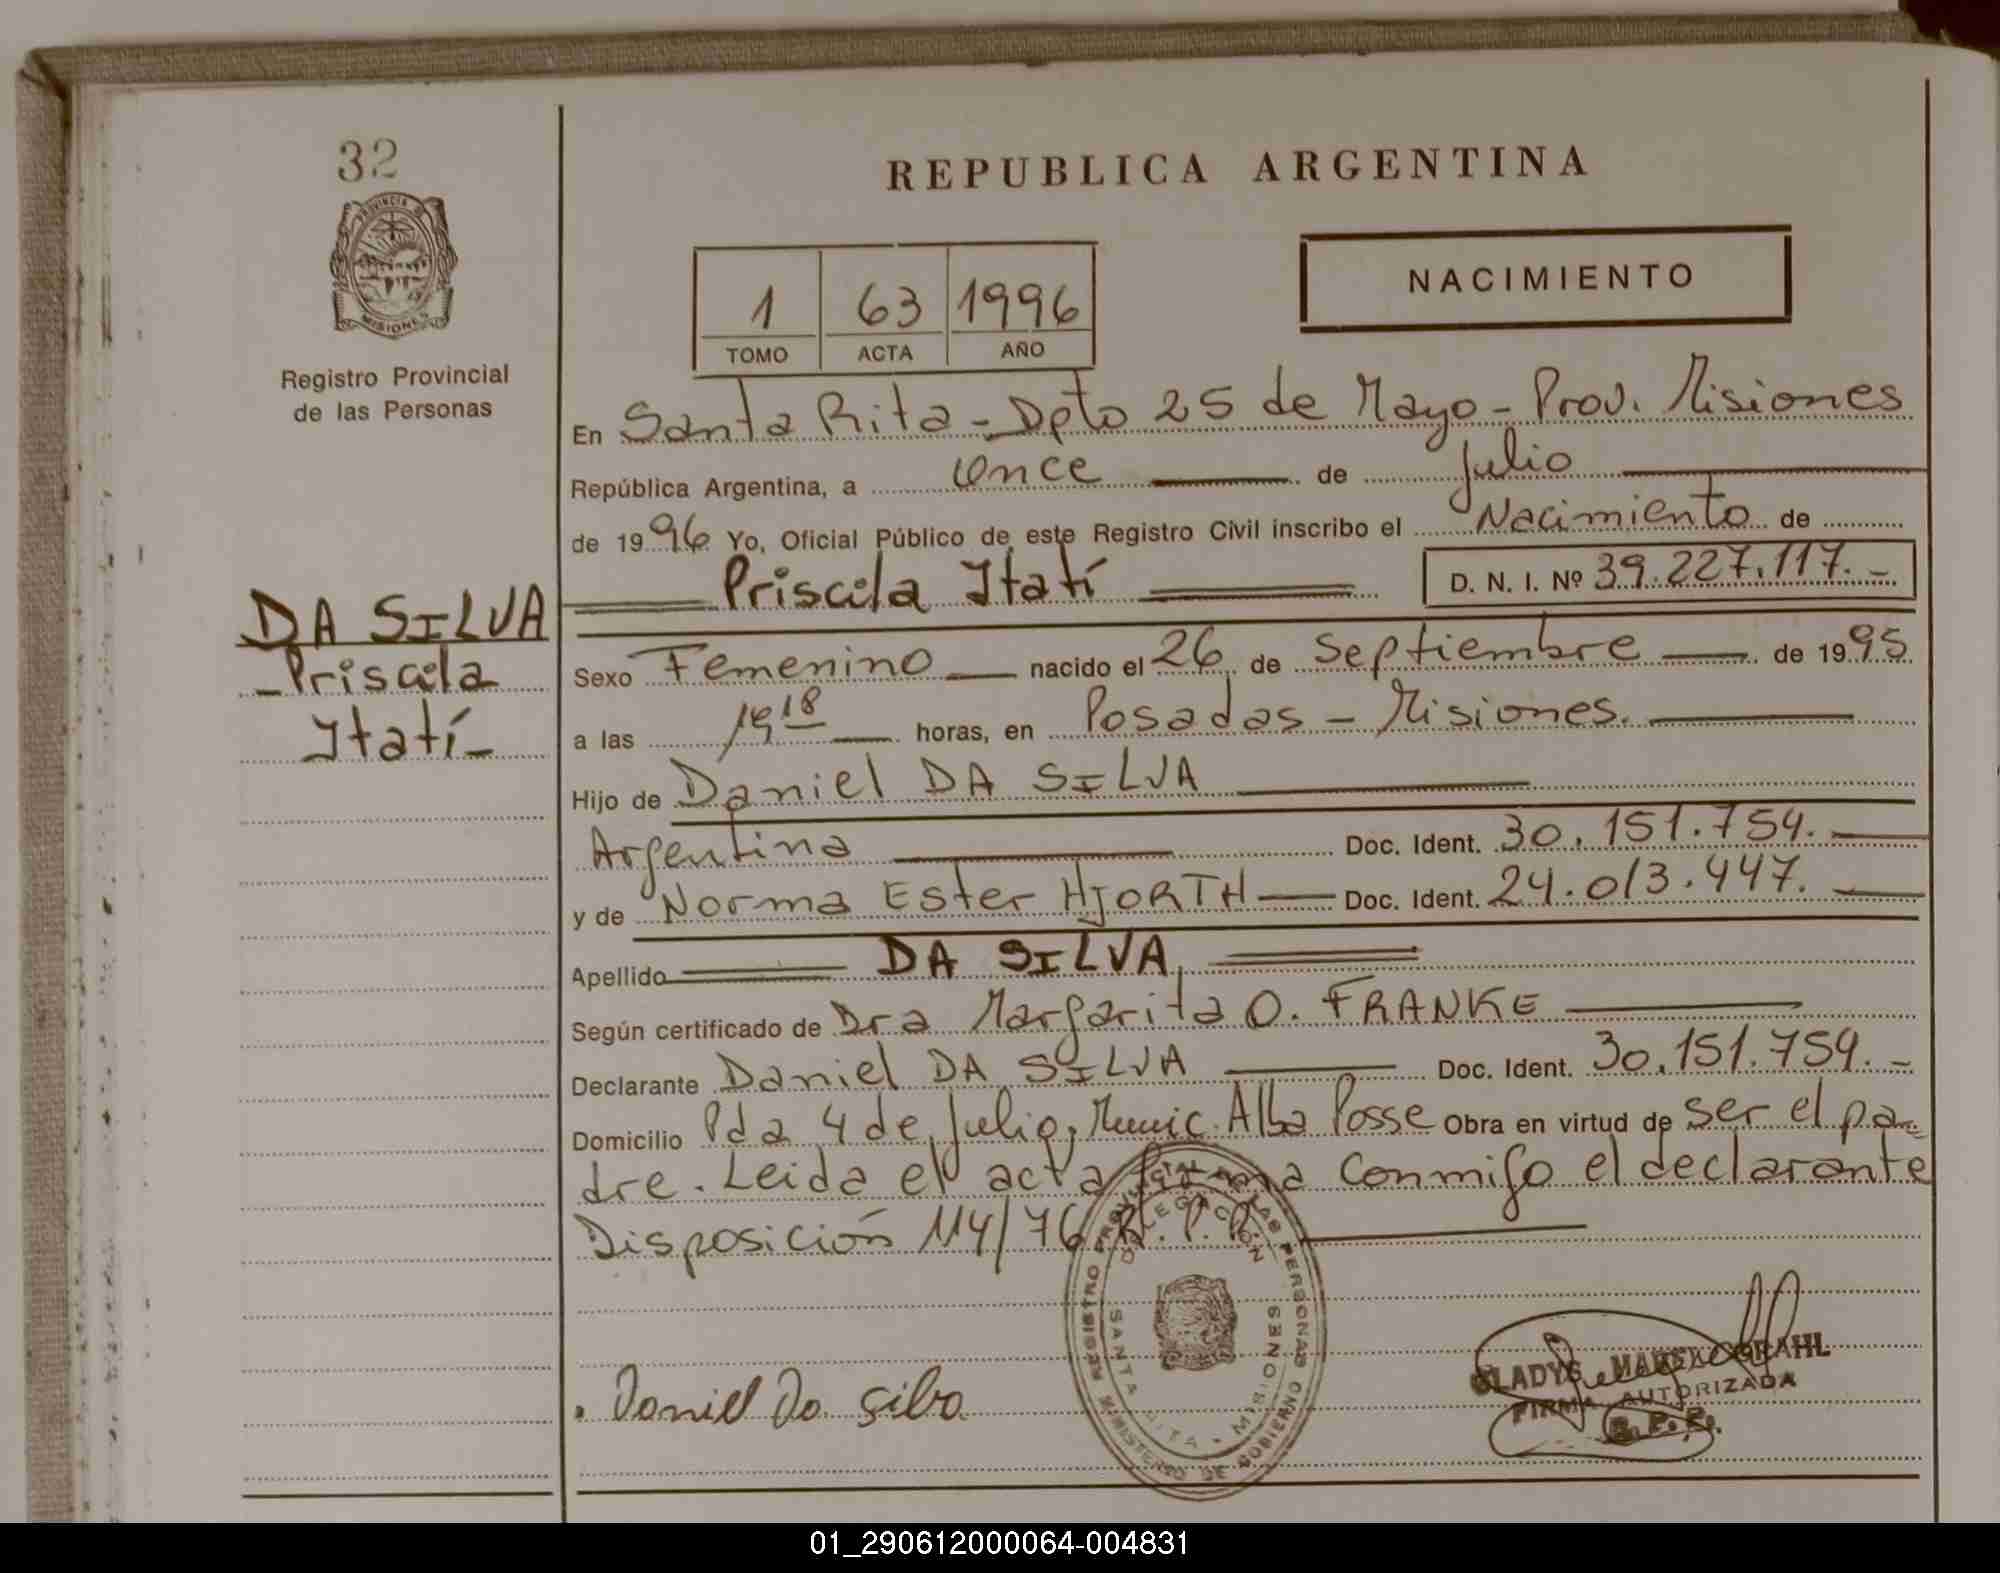 32
PROVINCIA DE
MISIONES
Registro Provincial
de las Personas
DA SILVA
Priscila
Itatí
REPUBLICA ARGENTINA
NACIMIENTO
1 63 1996
TOMO ACTA AÑO
En Santa Rita - Dpto 25 de Mayo - Prov. Misiones
República Argentina, a once de Julio
de 1996 Yo, Oficial Público de este Registro Civil inscribo el Nacimiento de
Priscila Itatí D. N. I. Nº 39.227.117.-
Sexo Femenino nacido el 26 de Septiembre de 1995
a las 19 18 horas, en Posadas - Misiones.
Hijo de Daniel DA SILVA
Argentina Doc. Ident. 30.151.759.
y de Norma Ester HJORTH Doc. Ident. 24.013.447.
Apellido DA SILVA
Según certificado de Dra Margarita O. FRANKE
Declarante Daniel DA SILVA Doc. Ident. 30.151.759.-
Domicilio Pda 4 de Julio, Munic. Alba Posse Obra en virtud de ser el pa-
dre. Leida el acta firma conmigo el declarante
Disposición 114/76 R. P. P.
REGISTRO PROVINCIAL DE LAS PERSONAS
DELEGACION
SANTA RITA - MISIONES
MINISTERIO DE GOBIERNO
Daniel Da Silva
GLADYS GRAHL
FIRMA AUTORIZADA
R. P. P.
01_290612000064-004831